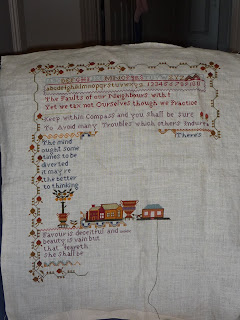 abcdefghiklmnopqrstuvwxyz 1234567891011
The Faults of our Neighbours with
Yet we tax not Ourselves though we Practice
Keep within Compass and you shall be sure
To Avoid many Troubles which others Endure
The mind
ought some
times to be
diverted
it may re
the better
to thinking
There's
Favour is deceitful and
beauty is vain but
that feareth
she shall be